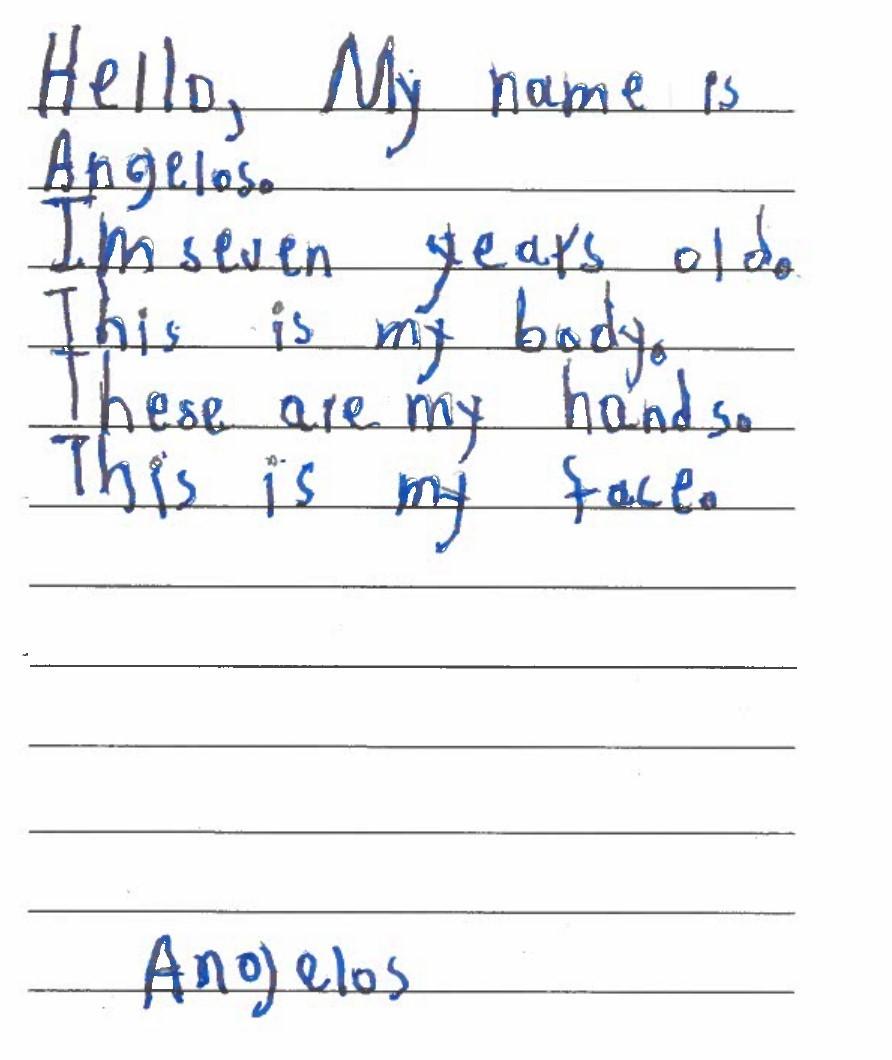 Hello, My name is
Angelos.
Im seven years old.
This is my body.
These are my hands.
This is my face.
Angelos